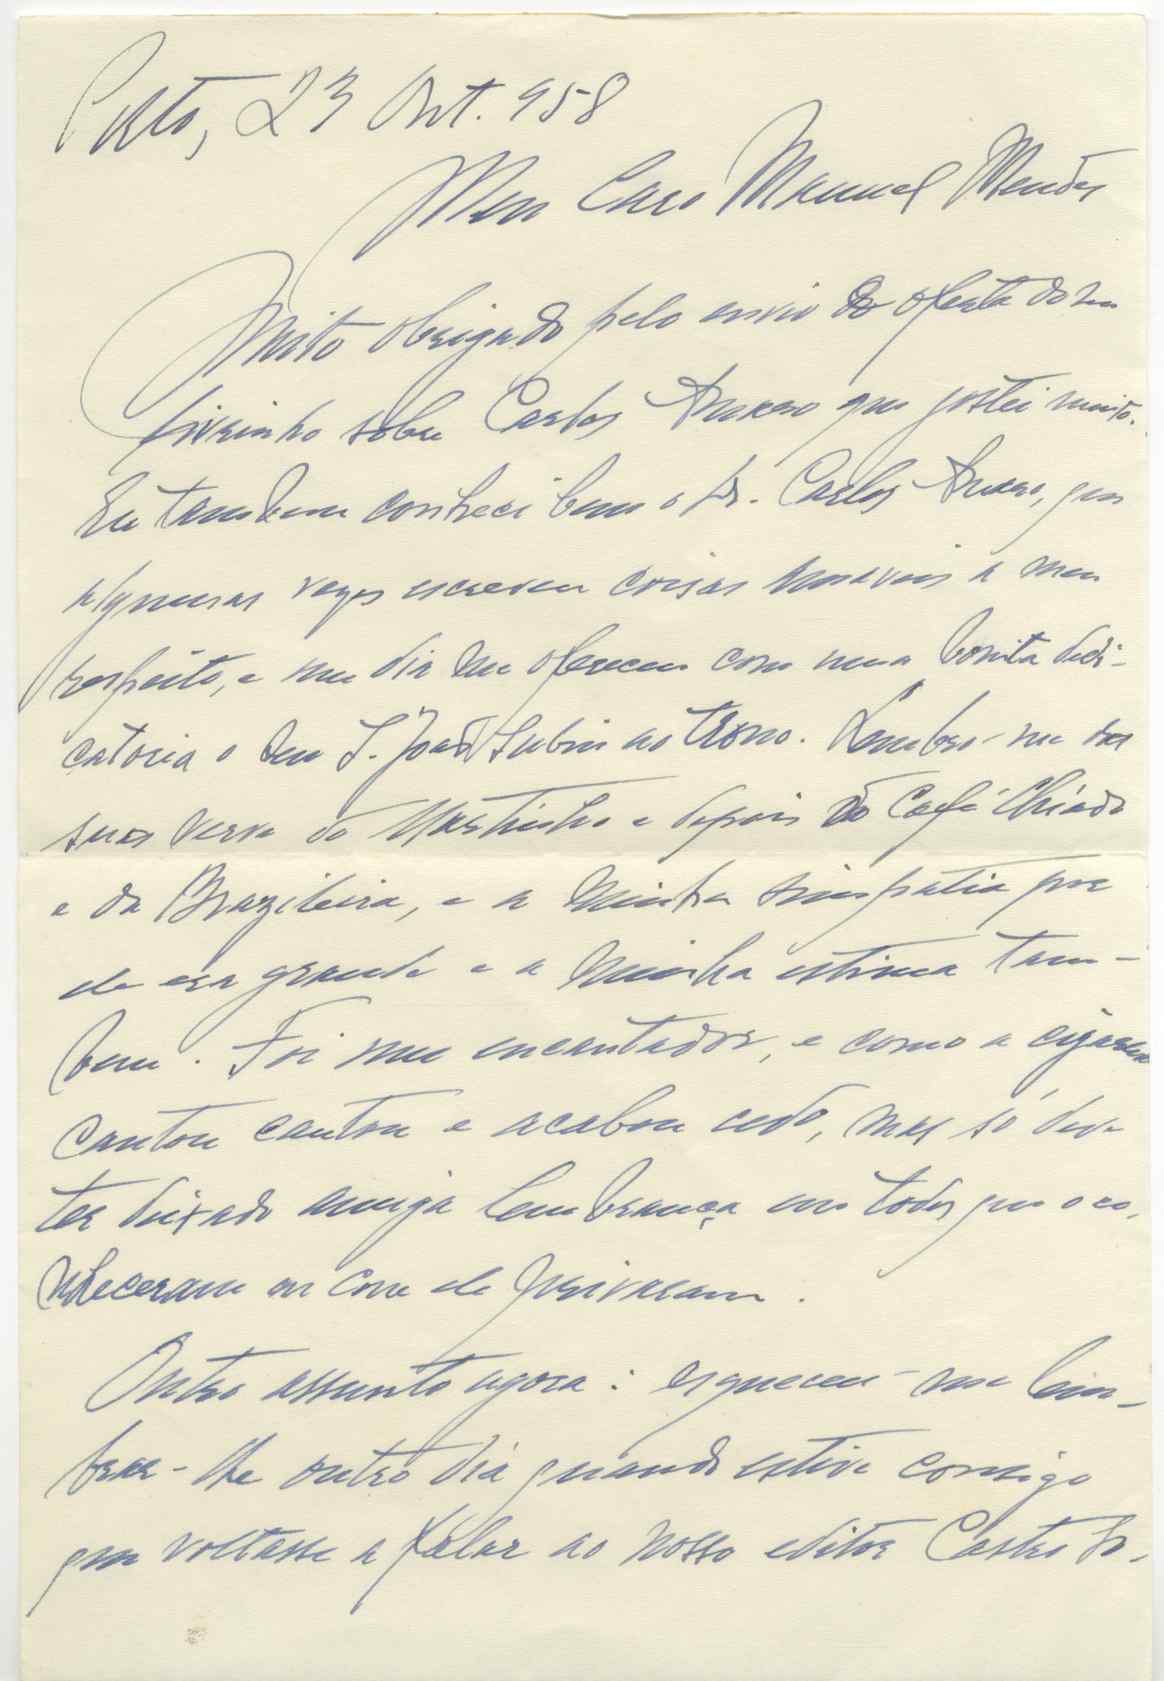 Porto, 23 Out. 958
Meu Caro Manuel Mendes
Muito obrigado pelo envio da oferta do seu
livrinho sobre Carlos Amaro que gostei muito.
Eu tambem conheci bem o Dr. Carlos Amaro, que
algumas vezes escreveu coisas amaveis a meu
respeito, e um dia me ofereceu com uma bonita dedi-
catoria o seu S. João Subiu ao trono. Lembro-me das
suas verve do Martinho e depois do Café Chiado
e da Brazileira, e a minha simpatia por
ele era grande e a minha estima tam-
bem. Foi um encantador, e como a cigarra
cantou cantou e acabou cedo, mas só deve
ter deixado amiga lembrança em todos que o co-
nheceram ou com ele privaram.
Outro assunto agora: esqueceu-me lem-
brar-lhe outro dia quando estive consigo
que voltasse a falar ao nosso editor Castro So-